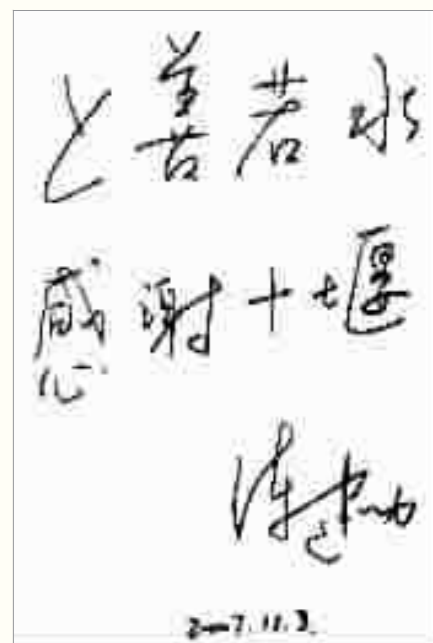 上善若水
感谢十堰
2007.11.3.